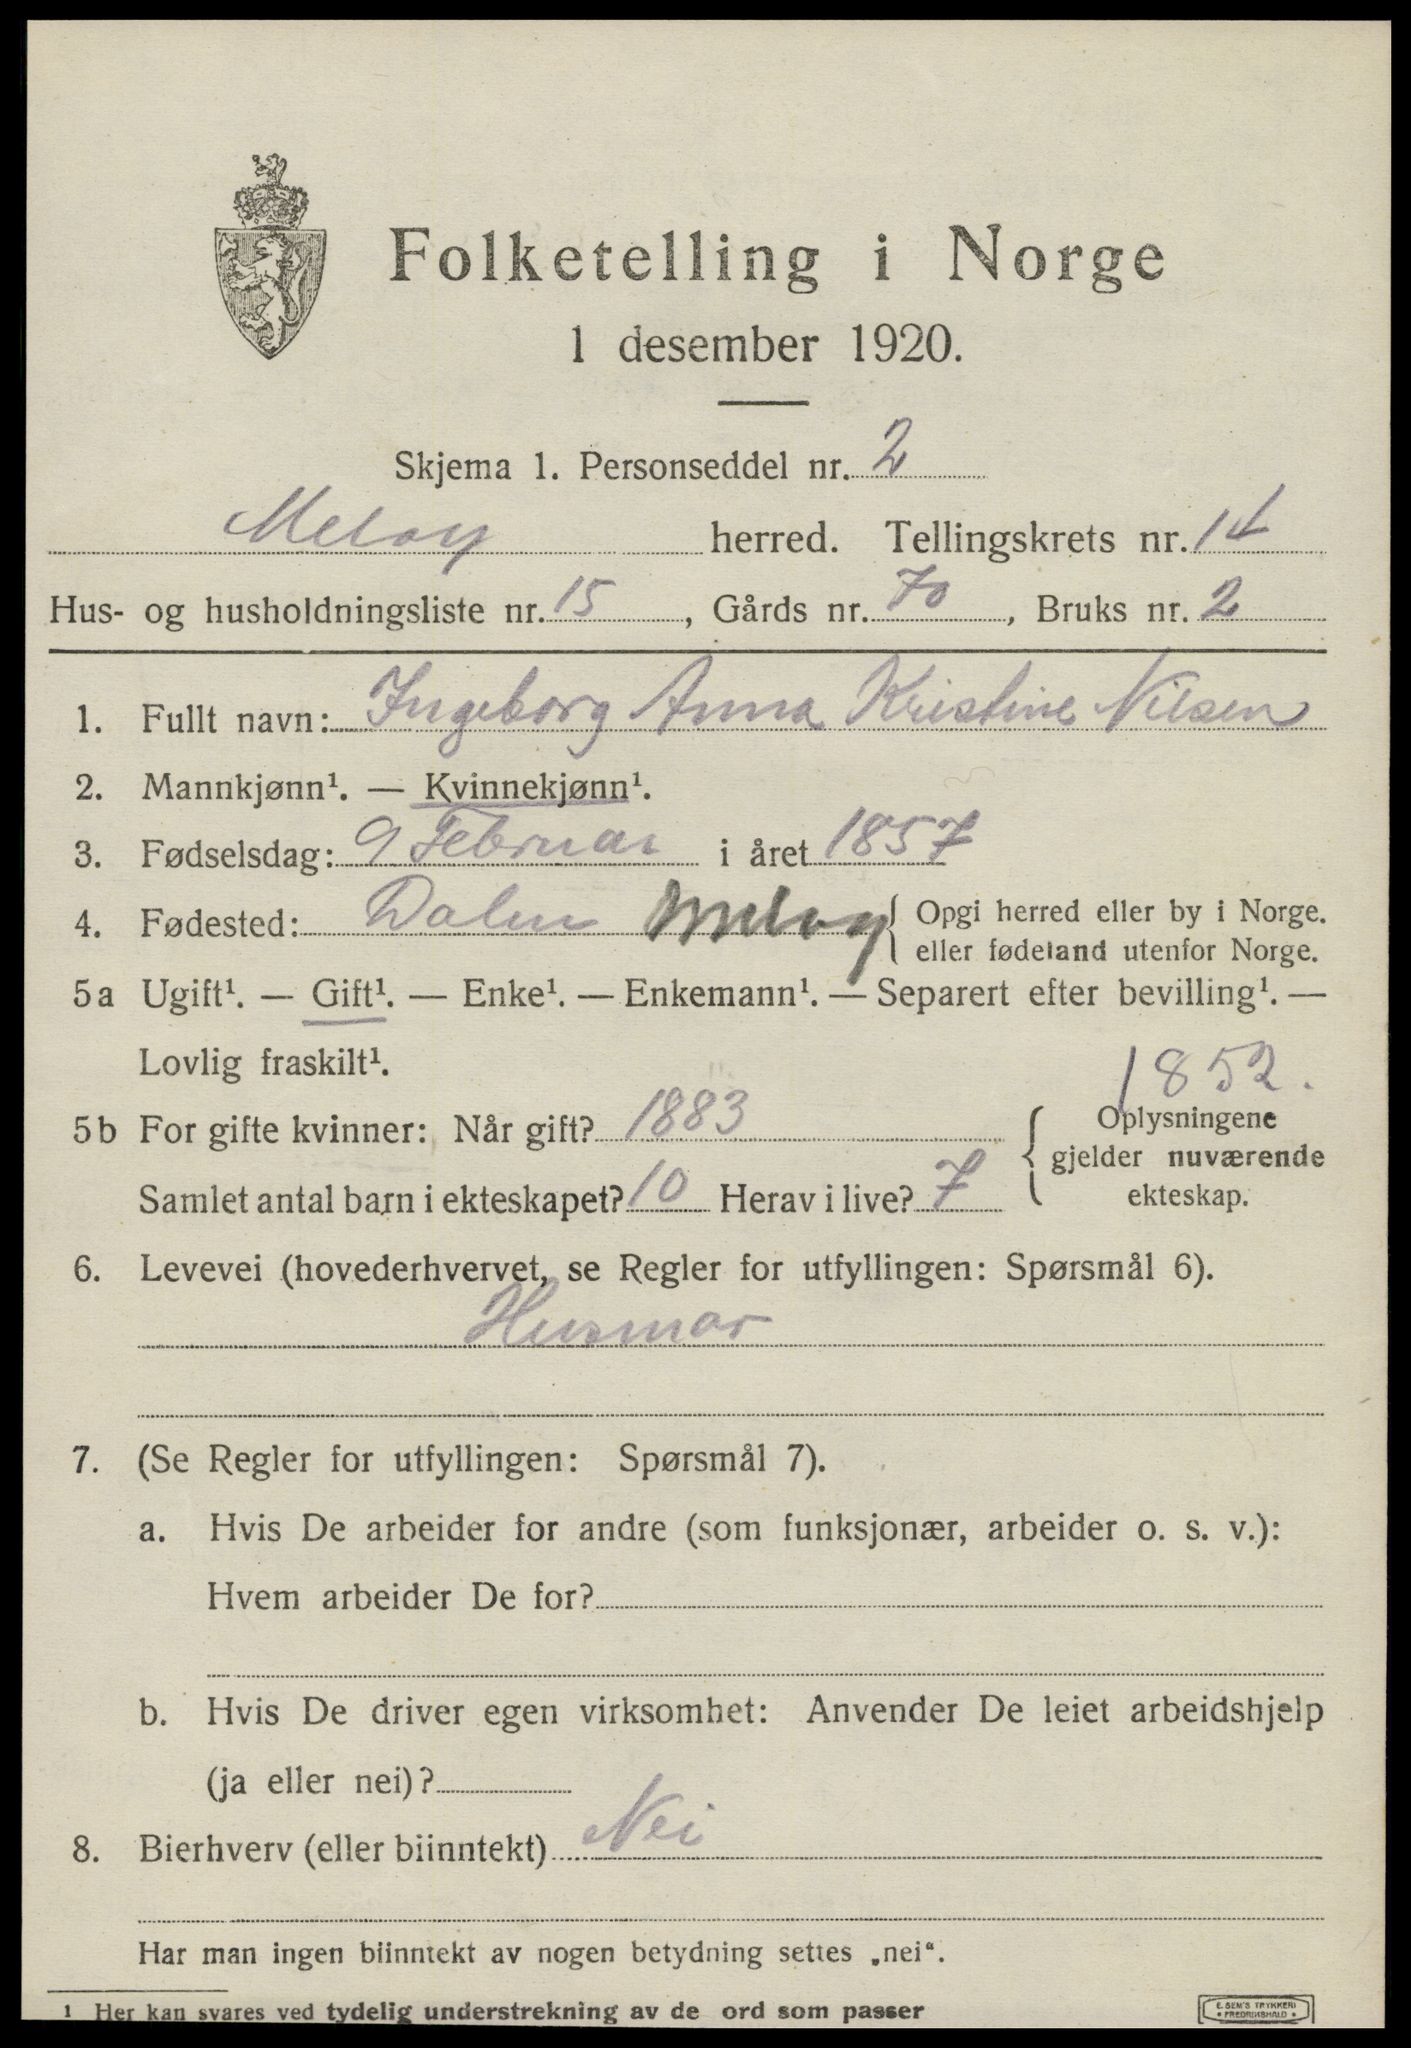 Folketelling i Norge
1 desember 1920.
Skjema 1. Personseddel nr. 2
Meløy herred. Tellingskrets nr. 14
Hus- og husholdningsliste nr. 15, Gårds nr. 70, Bruks nr. 2
1. Fullt navn: Ingeborg Anna Kristine Nilsen
2. Mannkjønn¹. — Kvinnekjønn¹.
3. Fødselsdag: 9 Februar i året 1857
4. Fødested: Dalen Meløy { Opgi herred eller by i Norge.
eller fødeland utenfor Norge.
5a Ugift¹. — Gift¹. — Enke¹. — Enkemann¹. — Separert efter bevilling¹. —
Lovlig fraskilt¹.
1852.
5b For gifte kvinner: Når gift? 1883 { Oplysningene
gjelder nuværende
Samlet antal barn i ekteskapet? 10 Herav i live? 7 ekteskap.
6. Levevei (hovederhvervet, se Regler for utfyllingen: Spørsmål 6).
Husmor
7. (Se Regler for utfyllingen: Spørsmål 7).
a. Hvis De arbeider for andre (som funksjonær, arbeider o. s. v.):
Hvem arbeider De for?
b. Hvis De driver egen virksomhet: Anvender De leiet arbeidshjelp
(ja eller nei)?
8. Bierhverv (eller biinntekt) Nei
Har man ingen biinntekt av nogen betydning settes „nei“.
¹ Her kan svares ved tydelig understrekning av de ord som passer
E. SEM'S TRYKKERI
• FREDRIKSHALD •